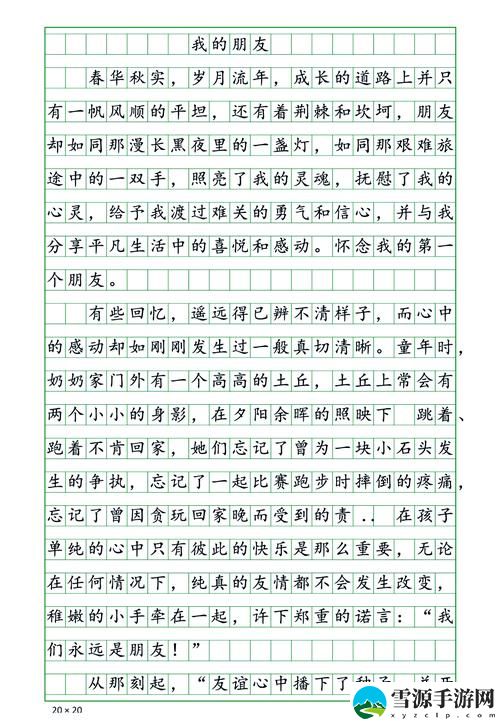 我的朋友
春华秋实，岁月流年，成长的道路上并只
有一帆风顺的平坦，还有着荆棘和坎坷，朋友
却如同那漫长黑夜里的一盏灯，如同那艰难旅
途中的一双手，照亮了我的灵魂，抚慰了我的
心灵，给予我渡过难关的勇气和信心，并与我
分享平凡生活中的喜悦和感动。怀念我的第一
个朋友。
有些回忆，遥远得已辨不清样子，而心中
的感动却如刚刚发生过一般真切清晰。童年时，
奶奶家门外有一个高高的土丘，土丘上常会有
两个小小的身影，在夕阳余晖的照映下 跳着、
跑着不肯回家，她们忘记了曾为一块小石头发
生的争执，忘记了一起比赛跑步时摔倒的疼痛，
忘记了曾因贪玩回家晚而受到的责．．在孩子
单纯的心中只有彼此的快乐是那么重要，无论
在任何情况下，纯真的友情都不会发生改变，
稚嫩的小手牵在一起，许下郑重的诺言：“我
们永远是朋友！”
从那刻起，“友谊心中播下了
20×20
雪源手游网
www.xyzclp.com